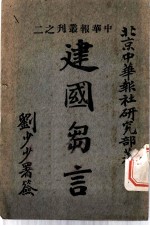 中華報叢刊之二
北京中華報社研究部著
建國芻言
劉少少署簽